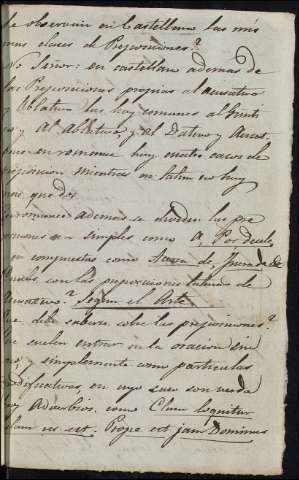 se observan en Castellano las mis
mas clases de Preposiciones?
No Señor: en castellano ademas de
las Preposiciones propias al acusativo
y Ablativo las hay comunes al Geniti
vo y al Ablativo, y al Dativo y Acus
en romance hay cuatro casos de
preposicion mientras en latin no hay
mas que dos
romance ademas se dividen las pre
en simples como A, Por
en compuestas como Acerca de
con las preposiciones latinas de
Acusativo. Segun el Arte
Que debe saberse sobre las preposiciones?
Que suelen entrar en la oracion sin
caso, y simplemente como particulas
en cuyo caso son verda
Adverbios, como Clam loquitur
Clam vos est. Prope est jam Dominus